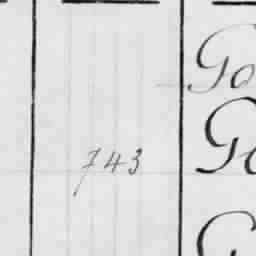 Go
743 Go
G